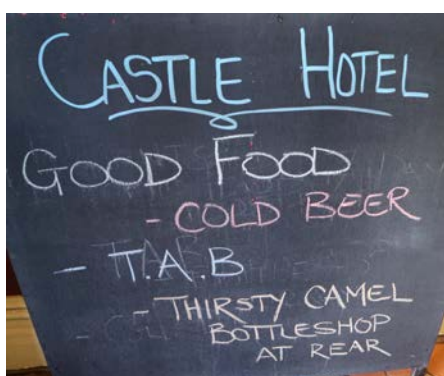 CASTLE HOTEL
GOOD FOOD
- COLD BEER
- T.A.B
- THIRSTY CAMEL
BOTTLESHOP
AT REAR